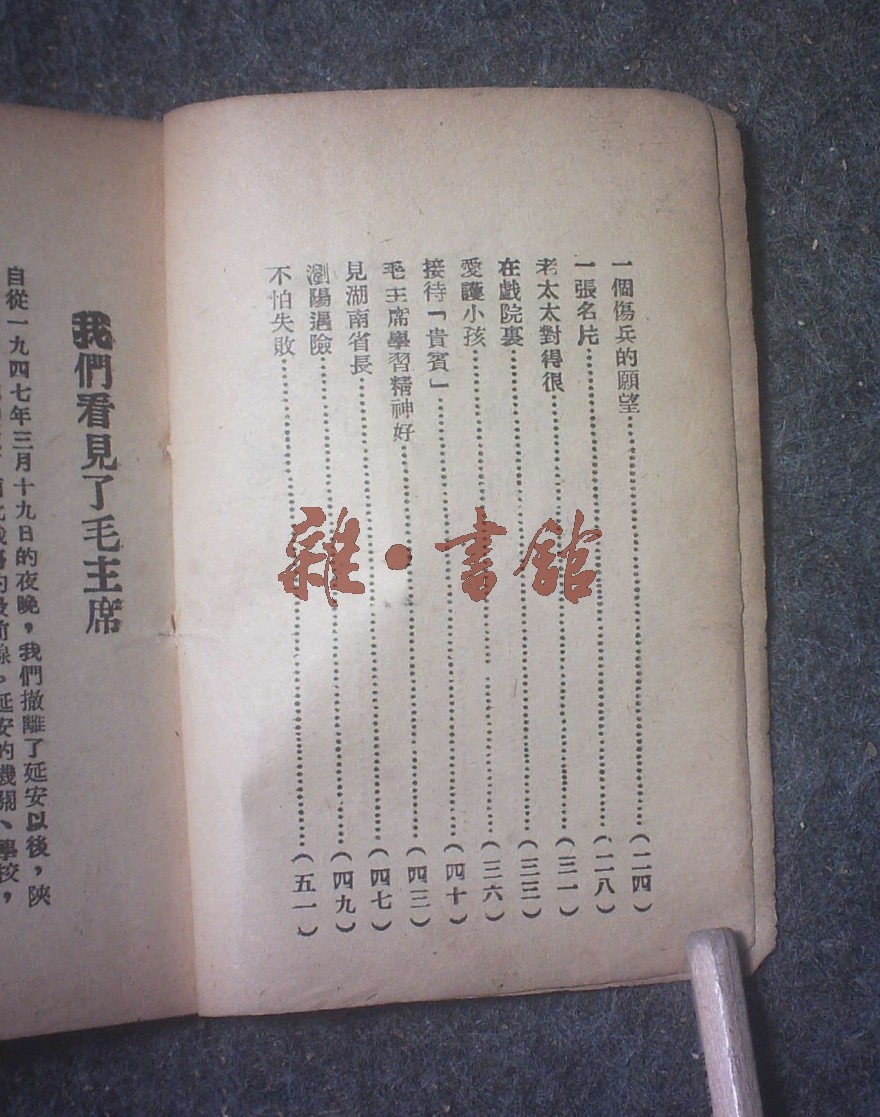 一個傷兵的願望…………(二四)
一張名片…………(二八)
老太太對得很…………(三一)
在戲院裏…………(三三)
愛護小孩…………(三六)
接待「貴賓」…………(四十)
毛主席學習精神好…………(四三)
見湖南省長…………(四七)
瀏陽遇險…………(四九)
不怕失敗…………(五一)
我們看見了毛主席
自從一九四七年三月十九日的夜晚，我們撤離了延安以後，陝
線。延安的機關、學校，
雜·書館